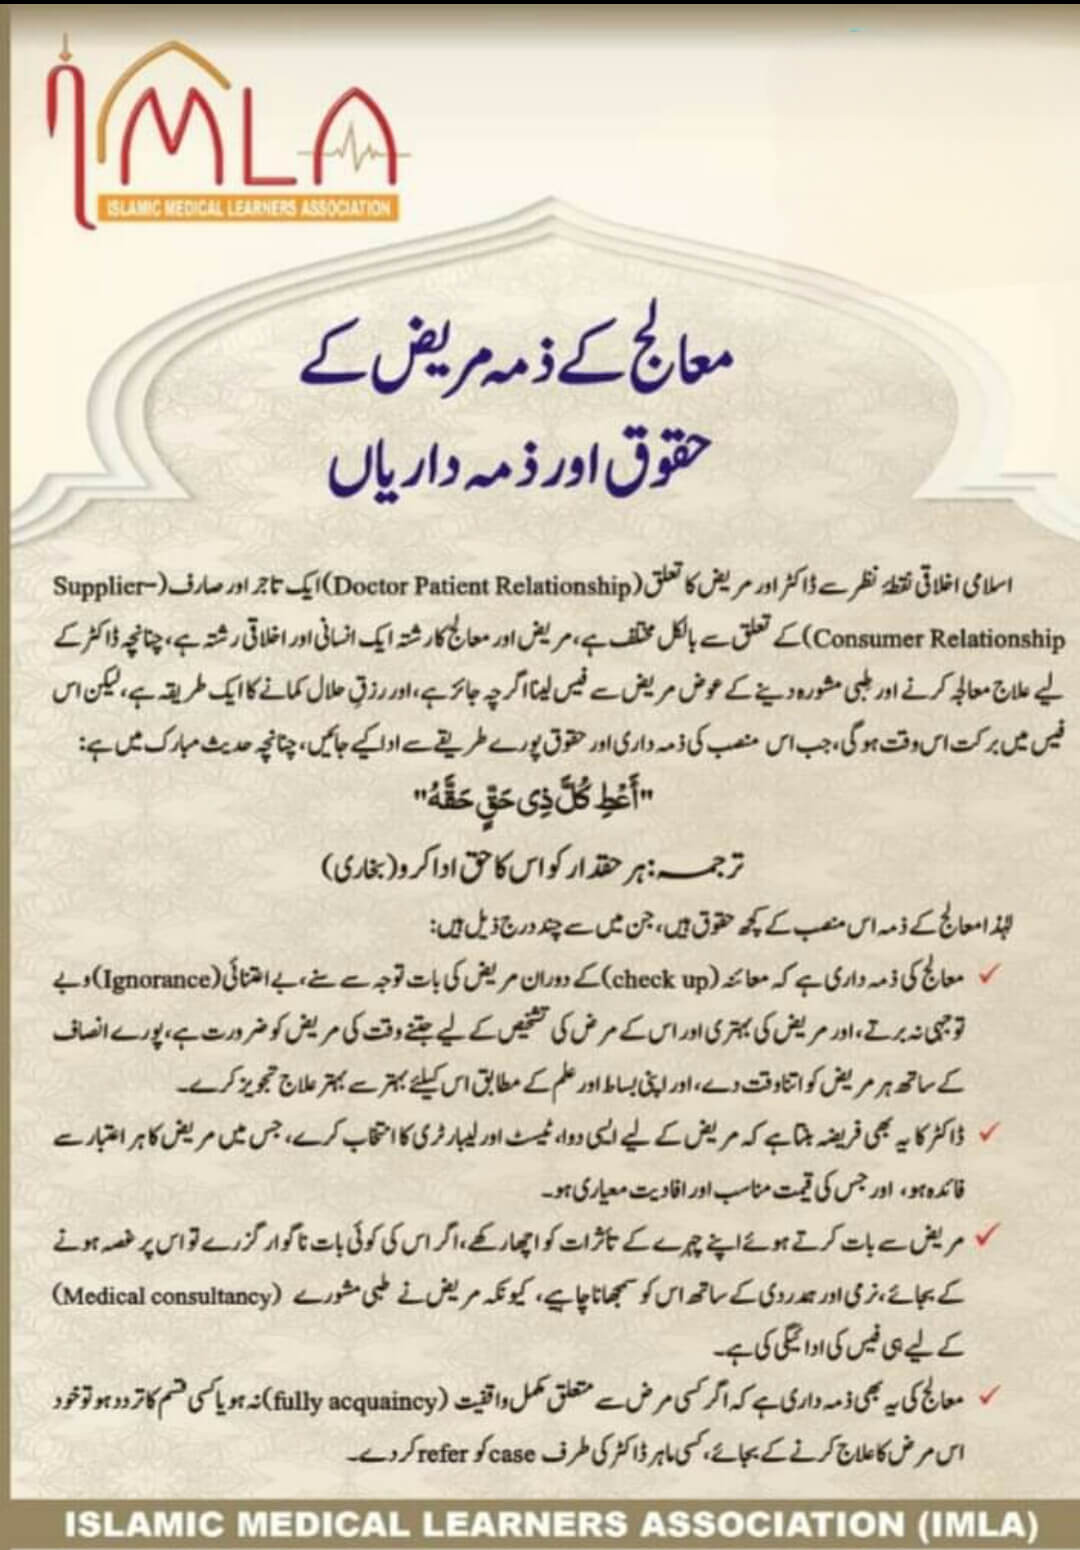 IMLA
ISLAMIC MEDICAL LEARNERS ASSOCIATION
معالج کے ذمہ مریض کے
حقوق اور ذمہ داریاں
اسلامی اخلاقی نقطۂ نظر سے ڈاکٹر اور مریض کا تعلق (Doctor Patient Relationship) ایک تاجر اور صارف (Supplier-
Consumer Relationship) کے تعلق سے بالکل مختلف ہے، مریض اور معالج کا رشتہ ایک انسانی اور اخلاقی رشتہ ہے، چنانچہ ڈاکٹر کے
لیے علاج معالجہ کرنے اور طبی مشورہ دینے کے عوض مریض سے فیس لینا اگرچہ جائز ہے، اور رزقِ حلال کمانے کا ایک طریقہ ہے، لیکن اس
فیس میں برکت اس وقت ہوگی، جب اس منصب کی ذمہ داری اور حقوق پورے طریقے سے ادا کیے جائیں، چنانچہ حدیث مبارک میں ہے:
"أَعْطِ كُلَّ ذِی حَقٍّ حَقَّهُ"
ترجمہ: ہر حقدار کو اس کا حق ادا کرو (بخاری)
لہٰذا معالج کے ذمہ اس منصب کے کچھ حقوق ہیں، جن میں سے چند درج ذیل ہیں:
✓ معالج کی ذمہ داری ہے کہ معائنہ (check up) کے دوران مریض کی بات توجہ سے سنے، بے اعتنائی (Ignorance) و بے
توجہی نہ برتے، اور مریض کی بہتری اور اس کے مرض کی تشخیص کے لیے جتنے وقت کی مریض کو ضرورت ہے، پورے انصاف
کے ساتھ ہر مریض کو اتنا وقت دے، اور اپنی بساط اور علم کے مطابق اس کیلئے بہتر سے بہتر علاج تجویز کرے۔
✓ ڈاکٹر کا یہ بھی فریضہ بنتا ہے کہ مریض کے لیے ایسی دوا، ٹیسٹ اور لیبارٹری کا انتخاب کرے، جس میں مریض کا ہر اعتبار سے
فائدہ ہو، اور جس کی قیمت مناسب اور افادیت معیاری ہو۔
✓ مریض سے بات کرتے ہوئے اپنے چہرے کے تأثرات کو اچھا رکھے، اگر اس کی کوئی بات ناگوار گزرے تو اس پر غصہ ہونے
کے بجائے، نرمی اور ہمدردی کے ساتھ اس کو سمجھانا چاہیے، کیونکہ مریض نے طبی مشورے (Medical consultancy)
کے لیے ہی فیس کی ادائیگی کی ہے۔
✓ معالج کی یہ بھی ذمہ داری ہے کہ اگر کسی مرض سے متعلق مکمل واقفیت (fully acquaincy) نہ ہو یا کسی قسم کا تردد ہو تو خود
اس مرض کا علاج کرنے کے بجائے، کسی ماہر ڈاکٹر کی طرف case کو refer کر دے۔
ISLAMIC MEDICAL LEARNERS ASSOCIATION (IMLA)